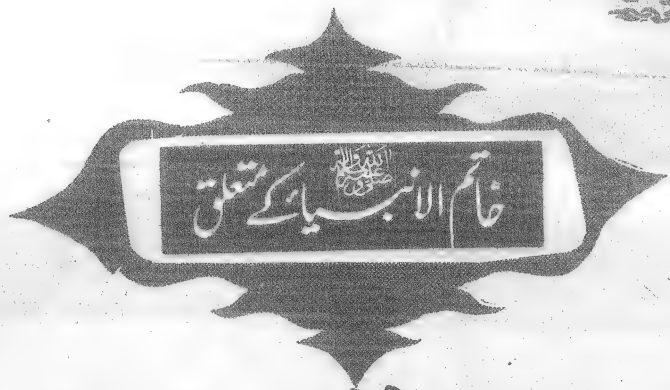 خاتم الانبیائے ﷺ کے متعلق